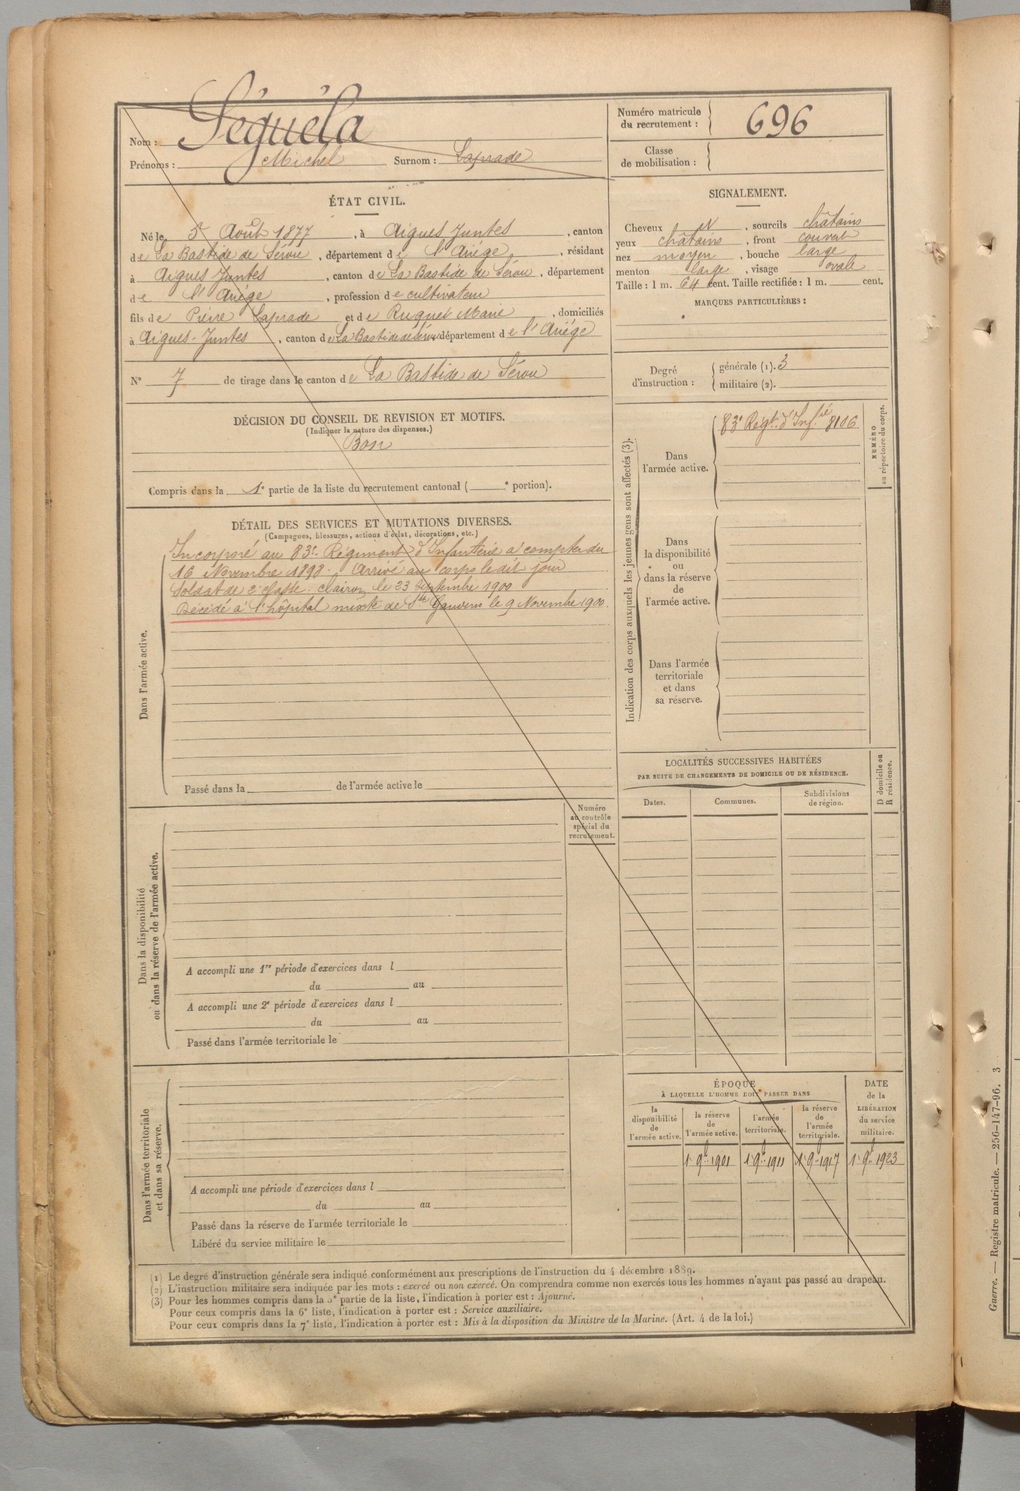 Nom : Séguéla
Prénoms : Michel Surnom : Laprade
Numéro matricule du recrutement : 696
Classe de mobilisation :
ÉTAT CIVIL.
Né le 5 Août 1877, à Aigues Juntes, canton
de La Bastide de Sérou, département de l'Ariège, résidant
à Aigues Juntes, canton de La Bastide de Sérou, département
de l'Ariège, profession de cultivateur
fils de Pierre Laprade et de Ruquet Marie, domiciliés
à Aigues-Juntes, canton de La Bastide de Sérou département de l'Ariège
N° 7 de tirage dans le canton de La Bastide de Sérou
SIGNALEMENT.
Cheveux N, sourcils châtains
yeux châtains, front couvert
nez moyen, bouche large
menton large, visage ovale
Taille : 1 m. 64 cent. Taille rectifiée : 1 m. cent.
MARQUES PARTICULIÈRES :
Degré d'instruction : générale (1). 3
militaire (2).
DÉCISION DU CONSEIL DE REVISION ET MOTIFS.
(Indiquer la nature des dispenses.)
Bon
Compris dans la 1e partie de la liste du recrutement cantonal ( e portion).
DÉTAIL DES SERVICES ET MUTATIONS DIVERSES.
(Campagnes, blessures, actions d'éclat, décorations, etc.)
Dans l'armée active.
Incorporé au 83e Régiment d'Infanterie à compter du
16 Novembre 1898. Arrivé au corps le dit jour
Soldat de 2e classe. Clairon le 23 Septembre 1900
Décédé à l'hôpital mixte de St Gaudens le 9 Novembre 1900.
Passé dans la de l'armée active le
Indication des corps auxquels les jeunes gens sont affectés (3).
Dans l'armée active.
83e Régt. d'Infie 8106
NUMÉRO au répertoire du corps.
Dans la disponibilité ou dans la réserve de l'armée active.
Dans l'armée territoriale et dans sa réserve.
LOCALITÉS SUCCESSIVES HABITÉES
PAR SUITE DE CHANGEMENTS DE DOMICILE OU DE RÉSIDENCE.
Dates.
Communes.
Subdivisions de région.
D domicile ou R résidence.
Numéro au contrôle spécial du recrutement.
Dans la disponibilité ou dans la réserve de l'armée active.
A accompli une 1re période d'exercices dans l
du au
A accompli une 2e période d'exercices dans l
du au
Passé dans l'armée territoriale le
Dans l'armée territoriale et dans sa réserve.
A accompli une période d'exercices dans l
du au
Passé dans la réserve de l'armée territoriale le
Libéré du service militaire le
ÉPOQUE
À LAQUELLE L'HOMME DOIT PASSER DANS
la disponibilité de l'armée active.
la réserve de l'armée active.
l'armée territoriale.
la réserve de l'armée territoriale.
DATE de la LIBÉRATION du service militaire.
1 9bre 1901
1 9bre 1911
1 9bre 1917
1 9bre 1923
(1) Le degré d'instruction générale sera indiqué conformément aux prescriptions de l'instruction du 4 décembre 1889.
(2) L'instruction militaire sera indiquée par les mots : exercé ou non exercé. On comprendra comme non exercés tous les hommes n'ayant pas passé au drapeau.
(3) Pour les hommes compris dans la 5e partie de la liste, l'indication à porter est : Ajourné.
Pour ceux compris dans la 6e liste, l'indication à porter est : Service auxiliaire.
Pour ceux compris dans la 7e liste, l'indication à porter est : Mis à la disposition du Ministre de la Marine. (Art. 4 de la loi.)
Guerre. — Registre matricule. — 256-147-96. 3